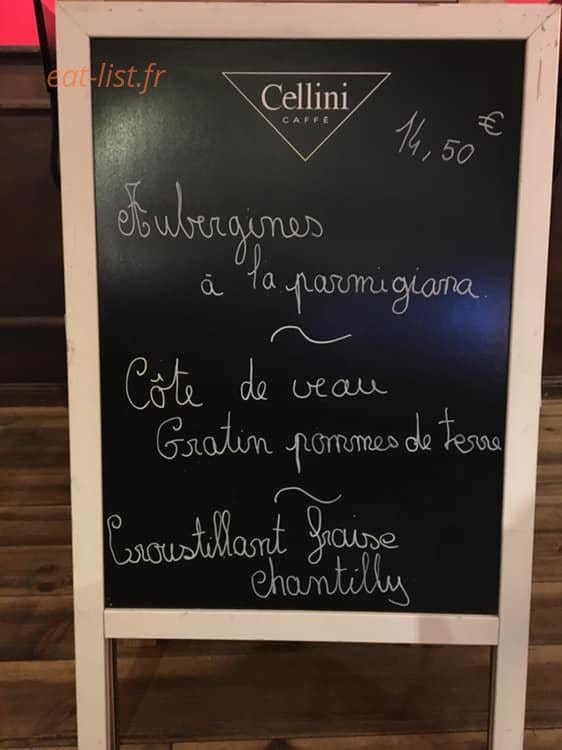 eat-list.fr
Cellini
CAFFÈ
14,50 €
Aubergines
à la parmigiana
Côte de veau
Gratin pommes de terre
Croustillant fraise
chantilly